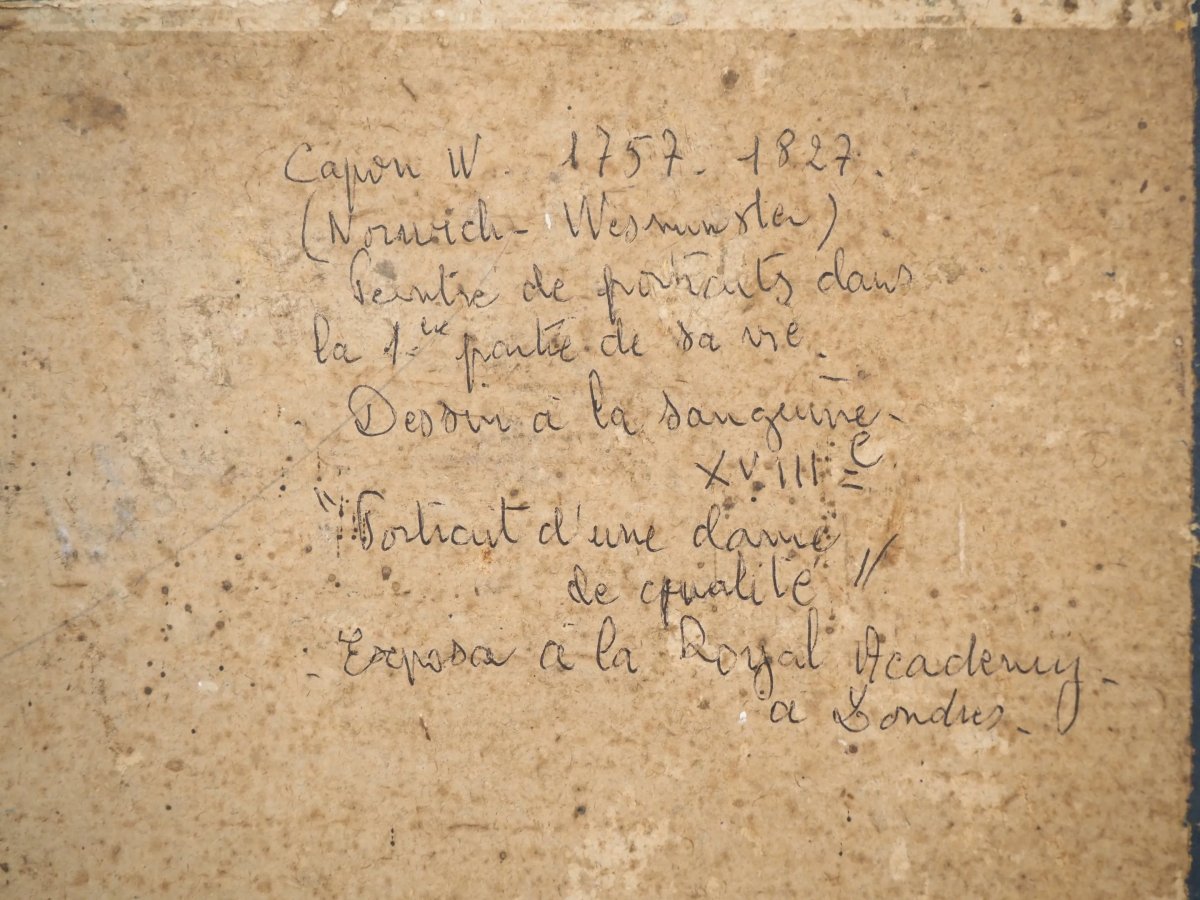 Capon W. 1757-1827.
(Norwich - Wesminster)
Peintre de portraits dans
la 1ère partie de sa vie.
- Dessin à la sanguine -
XVIIIe
"Portrait d'une dame
de qualité"
- Exposa à la Royal Academy -
à Londres -